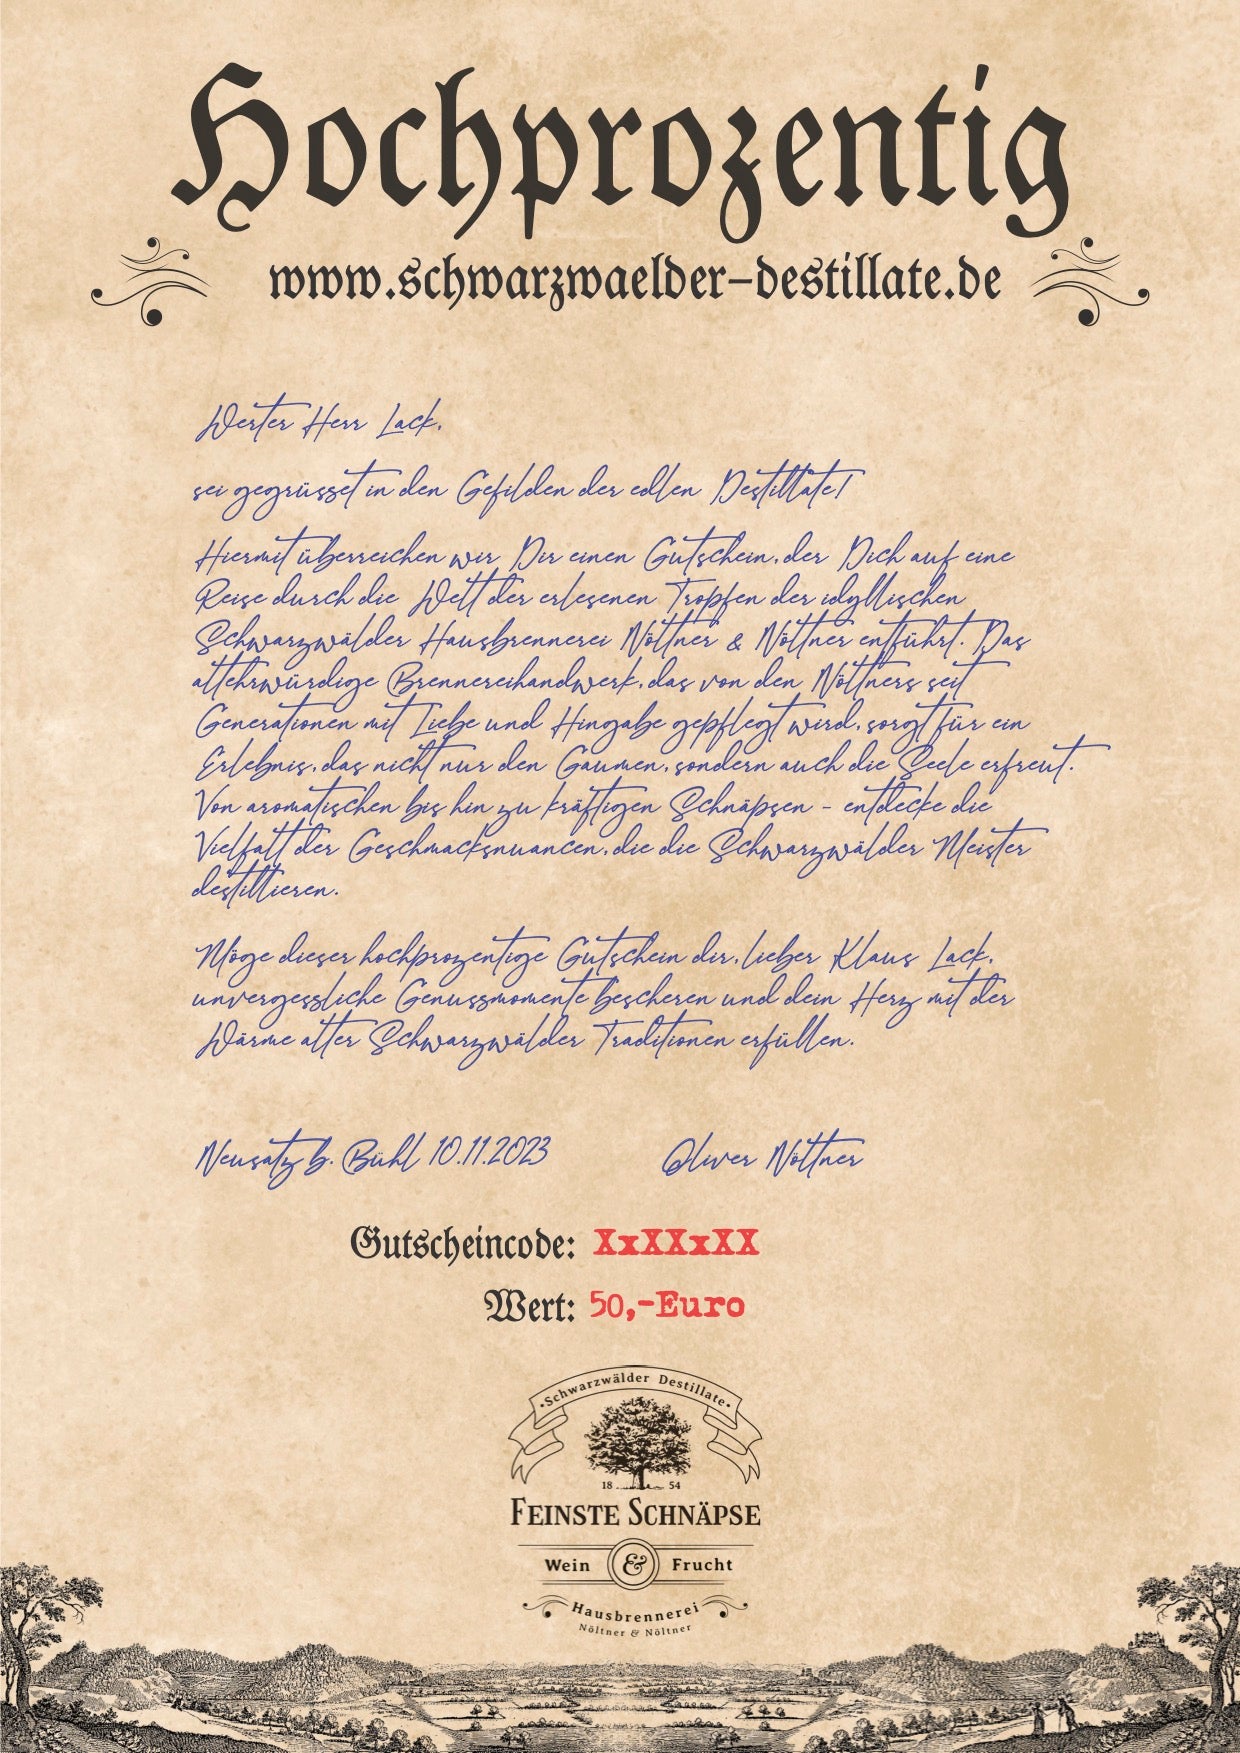 Hochprozentig
www.schwarzwaelder-destillate.de
Werter Herr Lack,
sei gegrüsset in den Gefilden der edlen Destillate!
Hiermit überreichen wir Dir einen Gutschein, der Dich auf eine
Reise durch die Welt der erlesenen Tropfen der idyllischen
Schwarzwälder Hausbrennerei Nöltner & Nöltner entführt. Das
altehrwürdige Brennereihandwerk, das von den Nöltners seit
Generationen mit Liebe und Hingabe gepflegt wird, sorgt für ein
Erlebnis, das nicht nur den Gaumen, sondern auch die Seele erfreut.
Von aromatischen bis hin zu kräftigen Schnäpsen - entdecke die
Vielfalt der Geschmacksnuancen, die die Schwarzwälder Meister
destillieren.
Möge dieser hochprozentige Gutschein dir, lieber Klaus Lack,
unvergessliche Genussmomente bescheren und dein Herz mit der
Wärme alter Schwarzwälder Traditionen erfüllen.
Neusatz b. Bühl 10.11.2023 Oliver Nöltner
Gutscheincode: XxXXxXX
Wert: 50,-Euro
·Schwarzwälder Destillate·
18 54
FEINSTE SCHNÄPSE
Wein & Frucht
Hausbrennerei
Nöltner & Nöltner